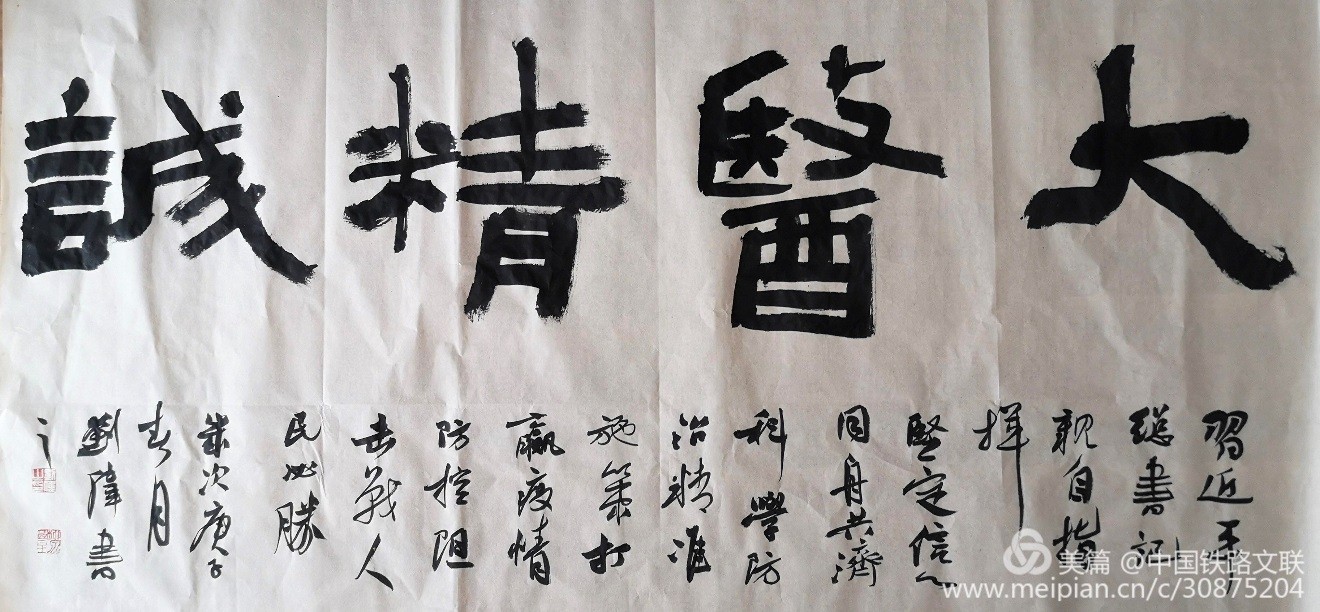 大醫精誠
習近平
總書記
親自指
揮
堅定信心
同舟共濟
科學防
治精準
施策打
贏疫情
防控阻
击戰人
民必勝
歲次庚子
春月
劉偉書
之
美篇 @中国铁路文联
www.meipian.cn/c/30875204